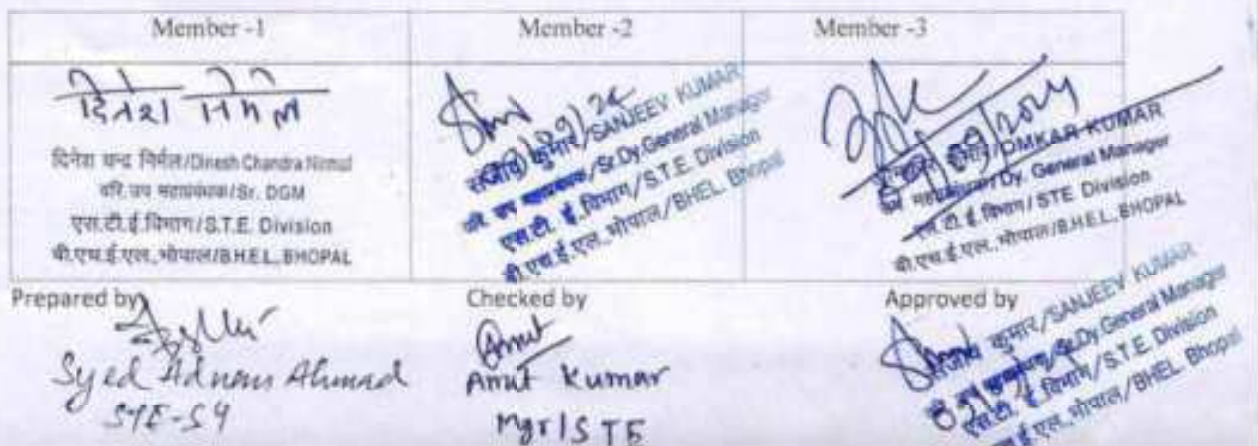 Member -1
Member -2
Member -3
दिनेश निर्मल
दिनेश चन्द्र निर्मल/Dinesh Chandra Nirmal
वरि. उप महाप्रबंधक/Sr. DGM
एस.टी.ई.विभाग/S.T.E. Division
बी.एच.ई.एल.,भोपाल/B.H.E.L., BHOPAL
संजीव कुमार/SANJEEV KUMAR
वरि. उप महाप्रबंधक/Sr.Dy.General Manager
एस.टी. ई.विभाग/S.T.E. Division
बी.एच.ई.एल.,भोपाल/BHEL. Bhopal
/09/2024
कुमार/OMKAR KUMAR
उप महाप्रबंधक/Dy. General Manager
एस.टी.ई.विभाग/STE Division
बी.एच.ई.एल.,भोपाल/B.H.E.L., BHOPAL
Prepared by
Checked by
Approved by
Syed Adnan Ahmad
STE-S4
Amit Kumar
Mgr/STE
कुमार/SANJEEV KUMAR
Sr.Dy.General Manager
एस.टी. ई.विभाग/S.T.E. Division
ई.एल.,भोपाल/BHEL Bhopal